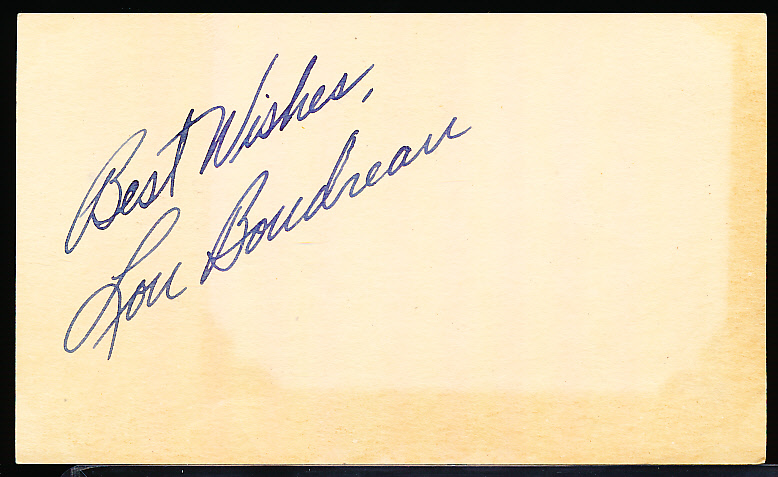 Best Wishes,
Lou Boudreau